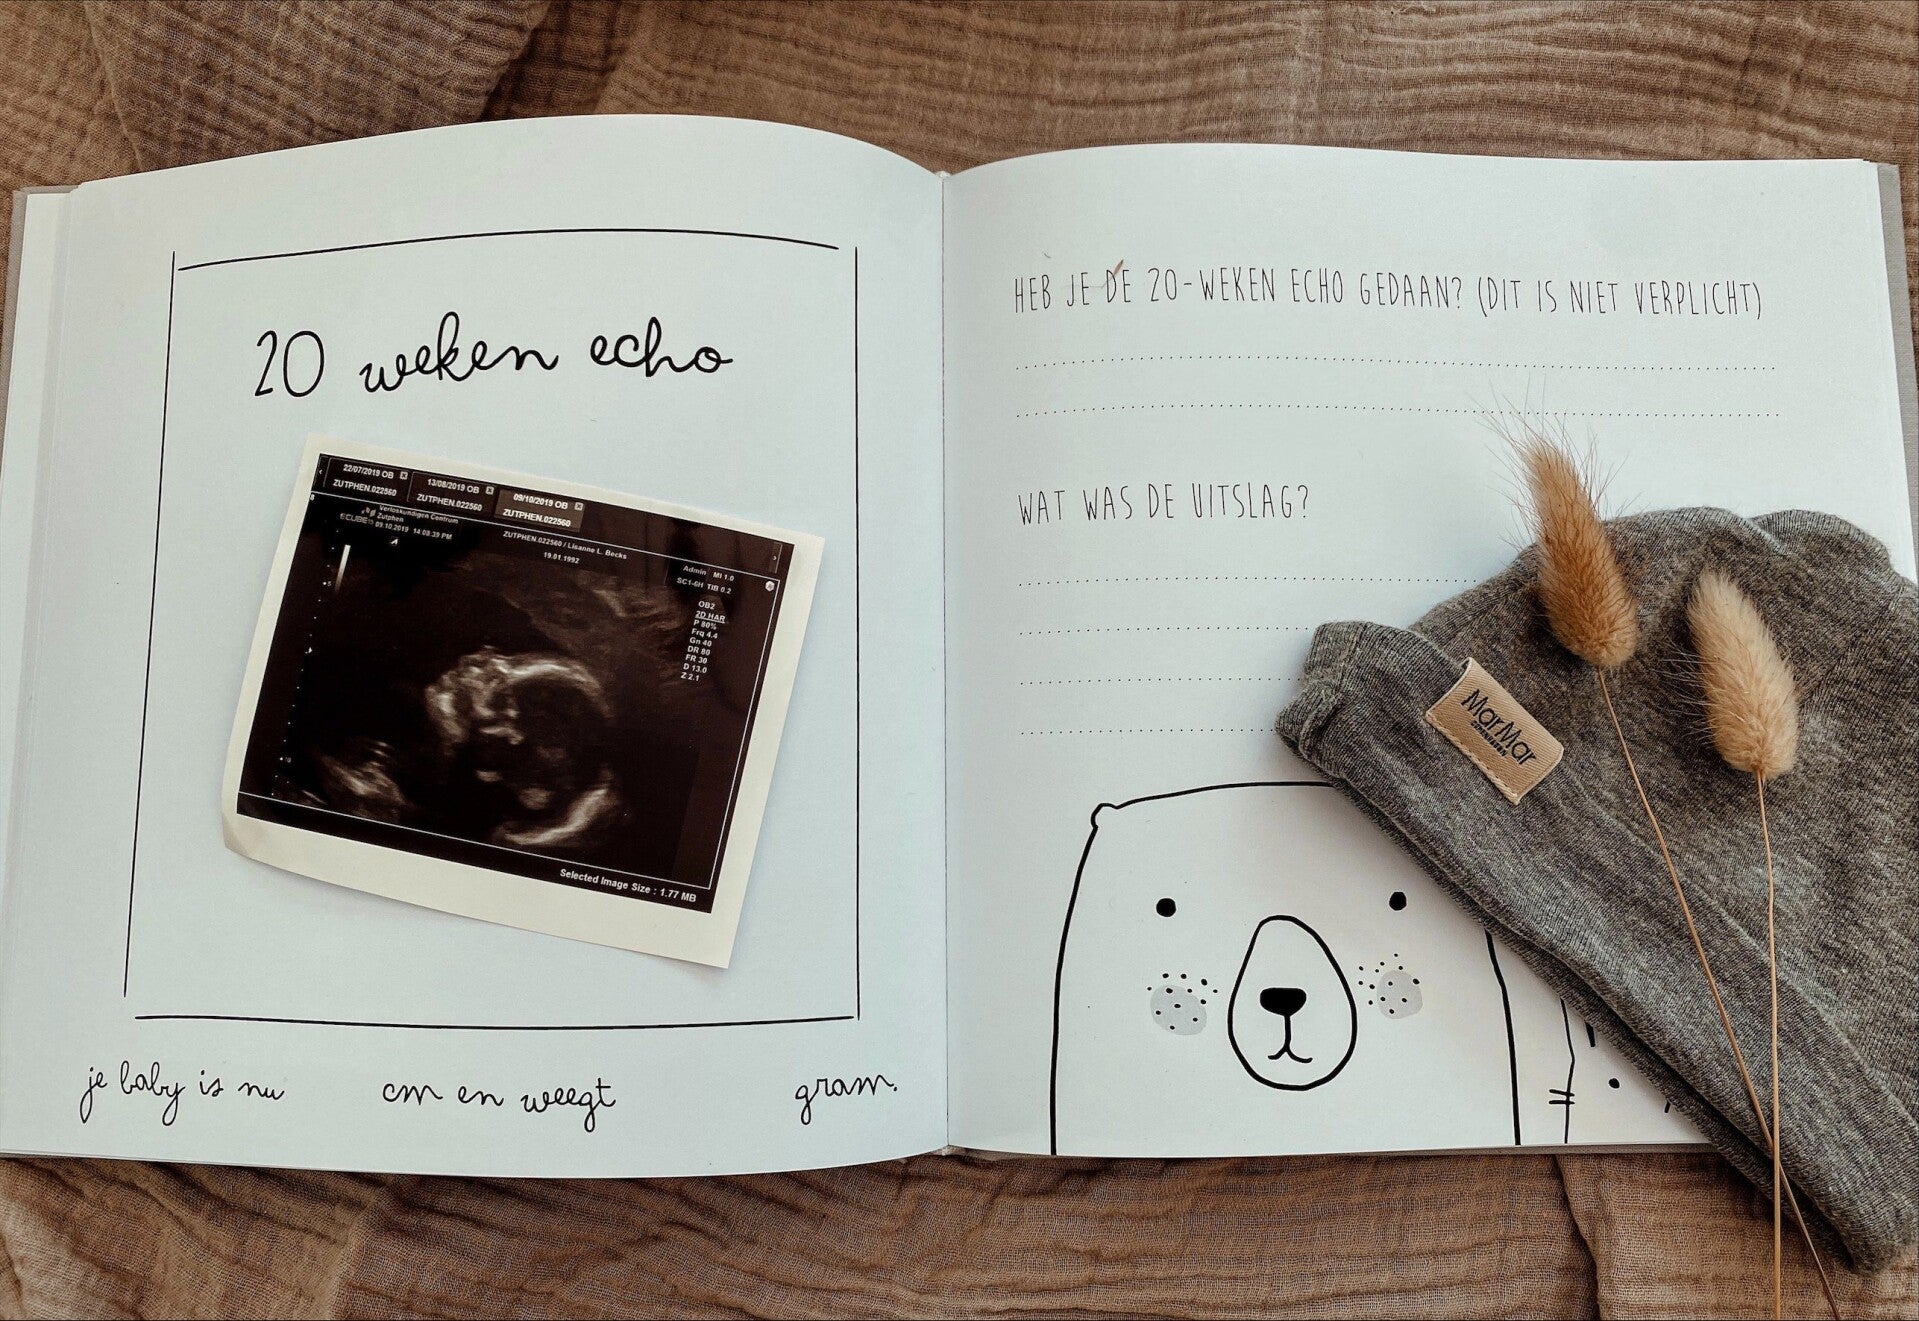 20 weken echo
22/07/2019 OB
ZUTPHEN.022560
13/08/2019 OB
ZUTPHEN.022560
09/10/2019 OB
ZUTPHEN.022560
Verloskundigen Centrum
Zutphen
ECUBE
09.10.2019 14:08:39 PM
ZUTPHEN.022560 / Lisanne L. Becks
19.01.1992
Admin MI 1.0
SC1-6H TIB 0.2
OB2
2D HAR
P 80%
Frq 4.4
Gn 40
DR 80
FR 30
D 13.0
Z 2.1
Selected Image Size : 1.77 MB
je baby is nu cm en weegt gram.
HEB JE DE 20-WEKEN ECHO GEDAAN? (DIT IS NIET VERPLICHT)
WAT WAS DE UITSLAG?
MarMar
COPENHAGEN